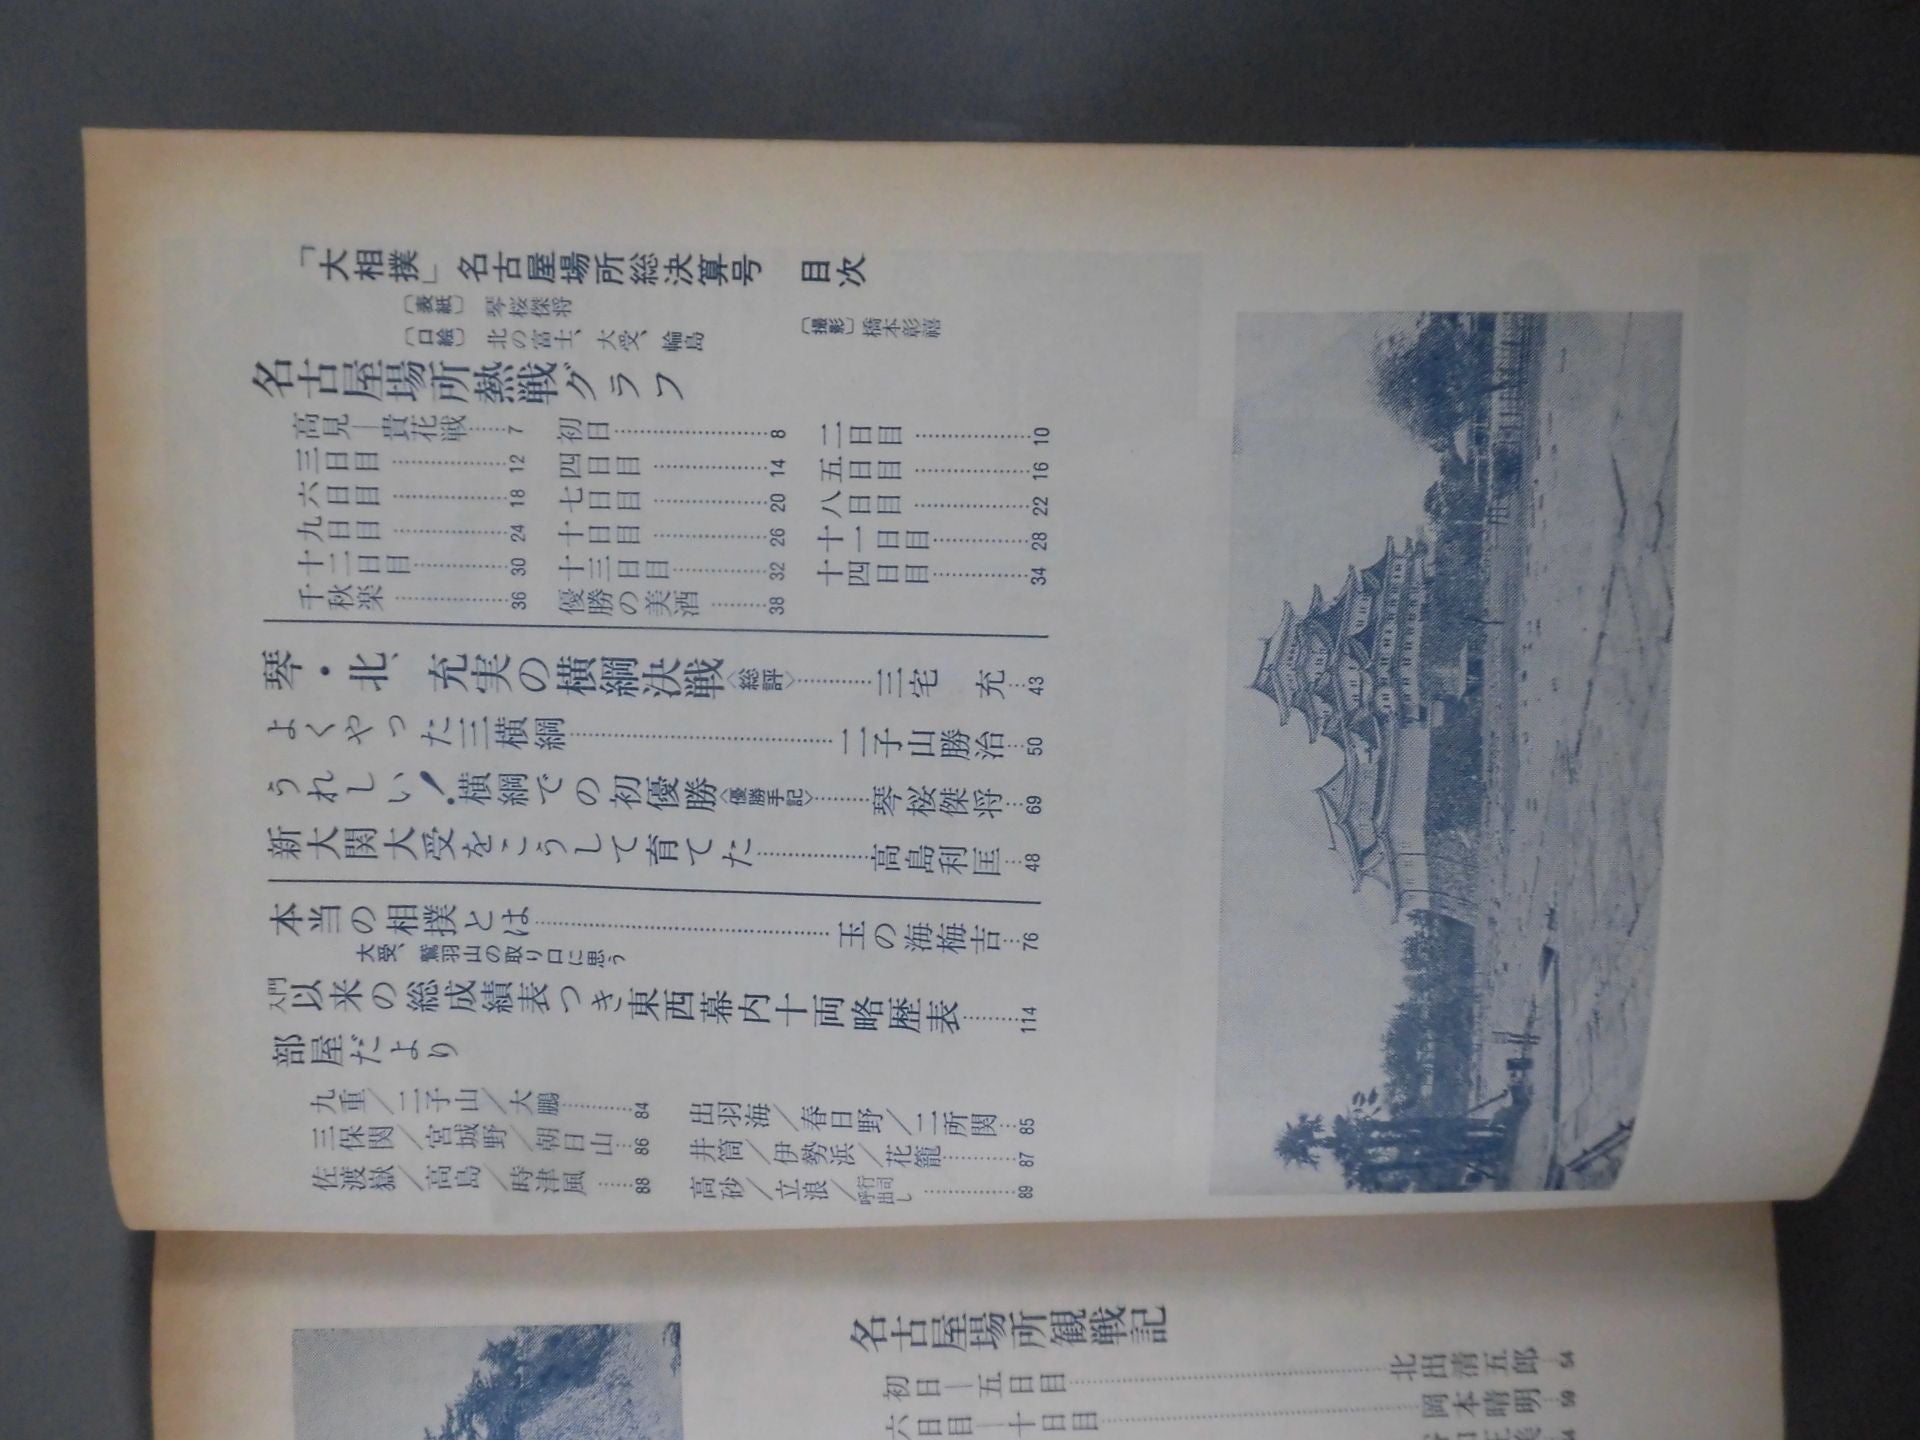 「大相撲」名古屋場所総決算号　目次
〔表紙〕　琴桜傑将
〔口絵〕　北の富士、大受、輪島　〔撮影〕橋本彰禧
名古屋場所熱戦グラフ
高見―貴花戦……7　初日……8　二日目……10
三日目……12　四日目……14　五日目……16
六日目……18　七日目……20　八日目……22
九日目……24　十日目……26　十一日目……28
十二日目……30　十三日目……32　十四日目……34
千秋楽……36　優勝の美酒……38
琴・北、充実の横綱決戦〈総評〉……三宅　充…43
よくやった三横綱……二子山勝治…50
うれしい！横綱での初優勝〈優勝手記〉……琴桜傑将…69
新大関大受をこうして育てた……高島利匡…48
本当の相撲とは……玉の海梅吉…76
大受、鷲羽山の取り口に思う
入門以来の総成績表つき東西幕内十両略歴表……114
部屋だより
九重／二子山／大鵬……84　出羽海／春日野／二所関…85
三保関／宮城野／朝日山…86　井筒／伊勢浜／花籠……87
佐渡嶽／高島／時津風……88　高砂／立浪／行司呼出し……89
名古屋場所観戦記
初日―五日目……北出清五郎…54
六日目―十日目……岡本晴明…59